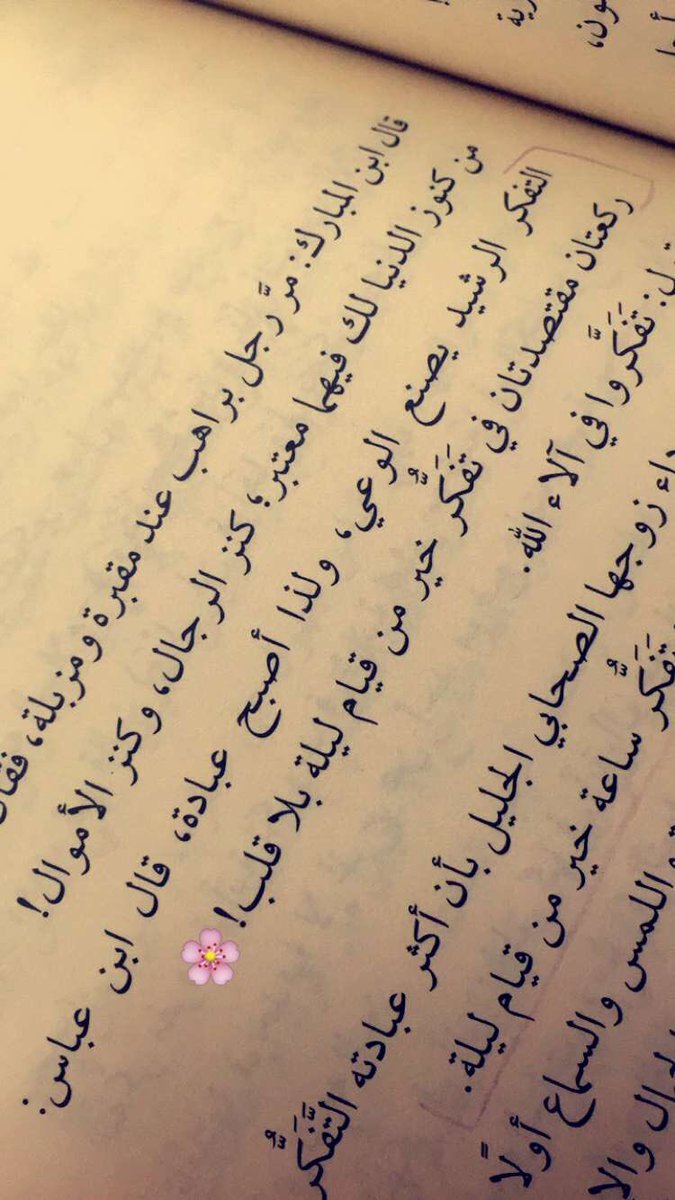 ون،
رية
قال ابن المبارك: مرَّ رجل براهب عند مقبرة ومزبلة،
من كنوز الدنيا لك فيهما معتبر؛ كنز الرجال، وكنز الأموال!
التفكر الرشيد يصنع الوعي، ولذا أصبح عبادة، قال ابن عباس:
ركعتان مقتصدتان في تَفَكُّر خير من قيام ليلة بلا قلب!
تَفَكَّروا في آلاء الله.
زوجها الصحابي الجليل بأن أكثر عبادته التَّفَكُّر
تَفَكُّر ساعة خير من قيام ليلة.
اللمس والسماع أولًا